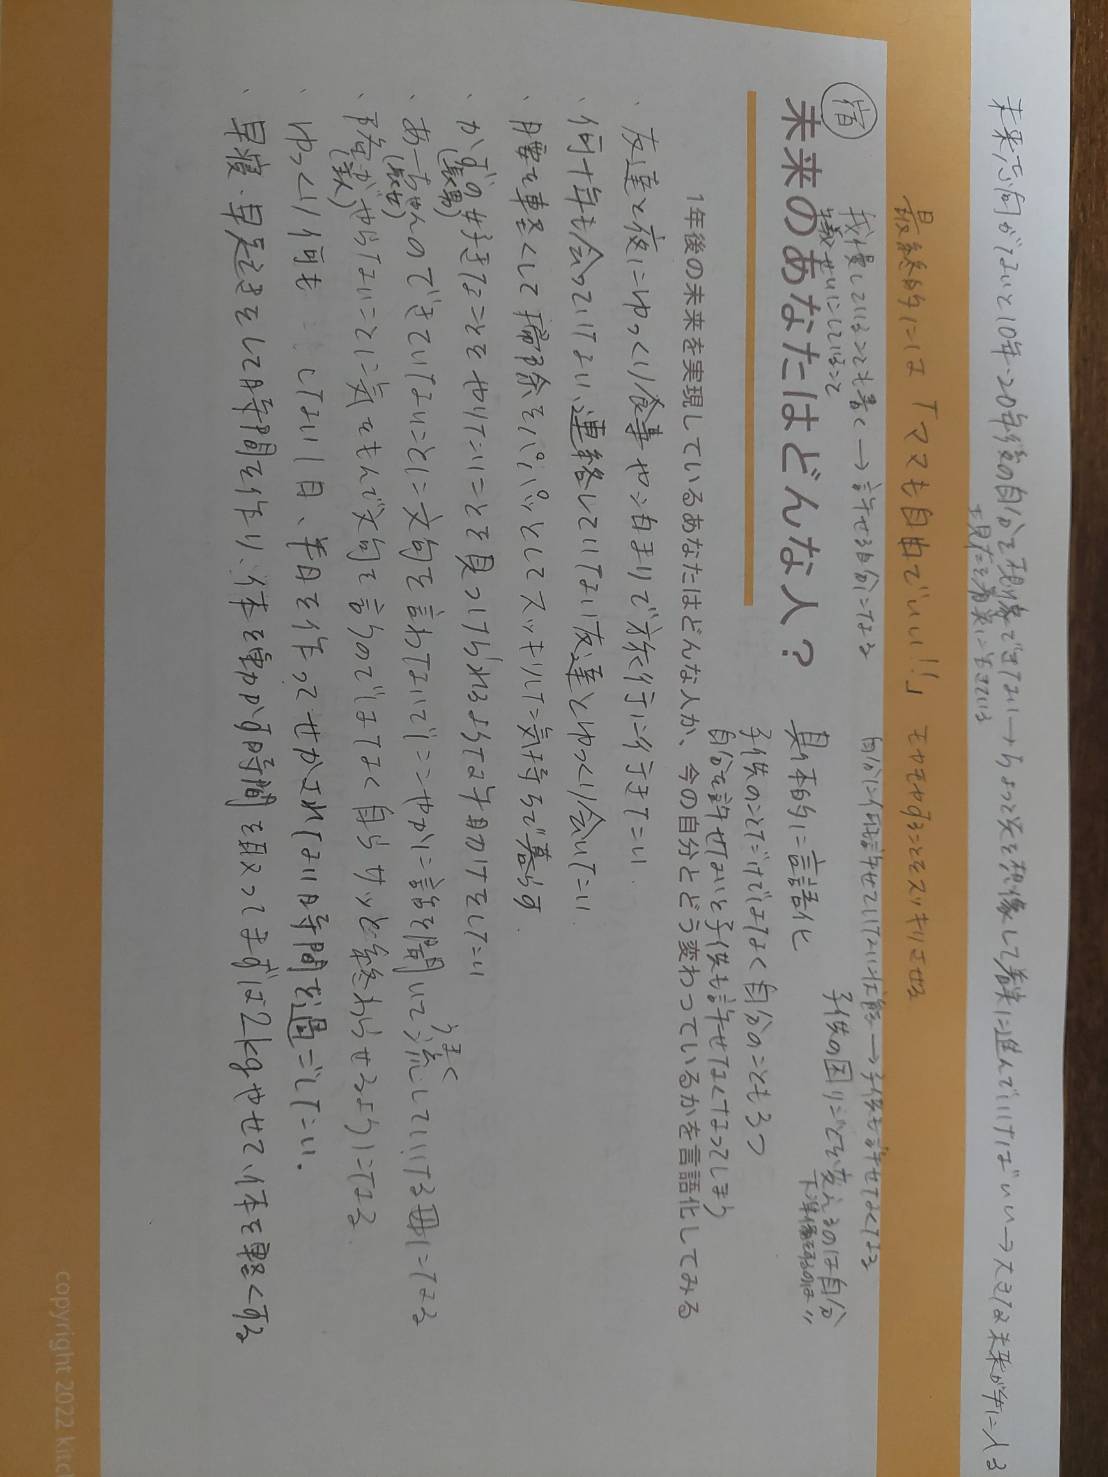 未来志向がないと10年・20年後の自分を想像できない→ちょっと先を想像して着実に進んでいけばいい→大きな未来が手に入る
現在を着実に生きている
最終的には「ママも自由でいい!!」 モヤモヤすることをスッキリさせる
我慢していることも書く→許せる自分になる
犠せいにしていること
自分に何も許せていない状態→子供も許せなくなる
宿
未来のあなたはどんな人?
具体的に言語化
子供の困りごとを変えるのは自分
下準備をするのは〃
子供のことだけではなく自分のことも3つ
自分を許せないと子供も許せなくなってしまう
1年後の未来を実現しているあなたはどんな人か、今の自分とどう変わっているかを言語化してみる
・友達と夜にゆっくり食事や、泊まりで旅行に行きたい
・何十年も会っていない、連絡していない友達とゆっくり会いたい
・腰を軽くして掃除をパパッとしてスッキリした気持ちで暮らす
・かずの好きなことややりたいことを見つけられるような手助けをしたい
(長男)
・あーちゃんのできていないことに文句を言わないでにこやかに話を聞いて流していける母になる
(長女)
うまく
・旦那がやらないことに気をもんで文句を言うのではなく自らサッと終わらせるようになる
(主人)
・ゆっくり何も しない1日、半日を作ってせかされない時間を過ごしたい.
・早寝、早起きをして時間を作り、体を動かす時間を取ってまずは2kgやせて、体を軽くする
copyright 2022 kitc